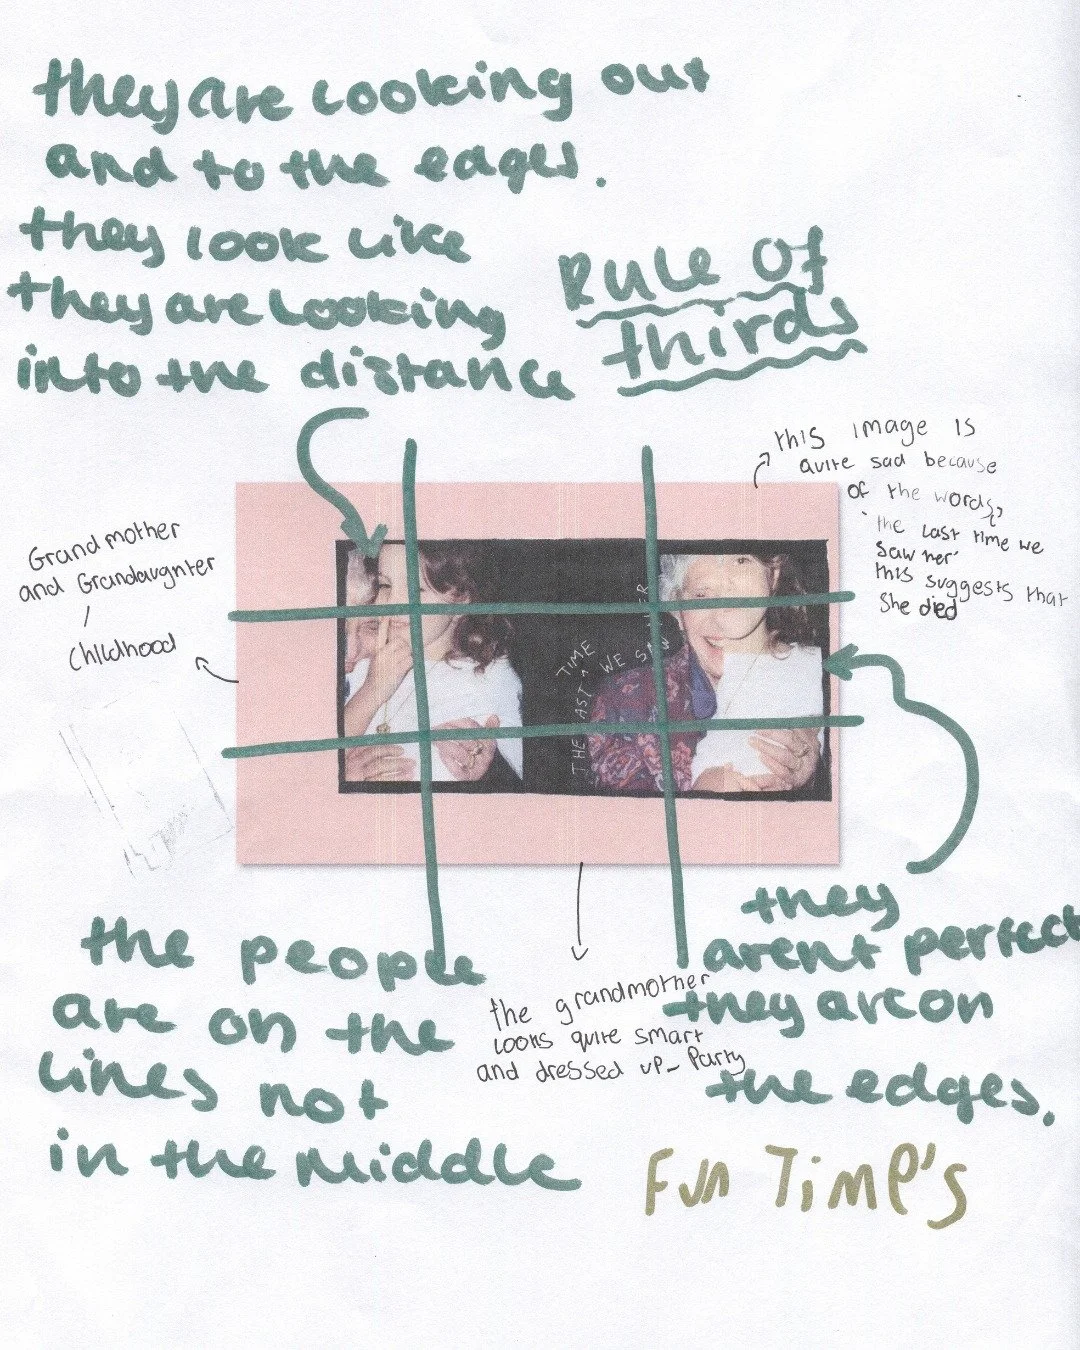 they are looking out
and to the edges.
they look like
they are looking
into the distance
Rule Of
thirds
this image is
quite sad because
of the words,
'the last time we
saw her'
this suggests that
she died
Grandmother
and Grandaughter
childhood
THE LAST TIME WE SAW HER
the people
are on the
lines not
in the middle
the grandmother
looks quite smart
and dressed up - Party
they
arent perfect
they are on
the edges.
Fun Time's